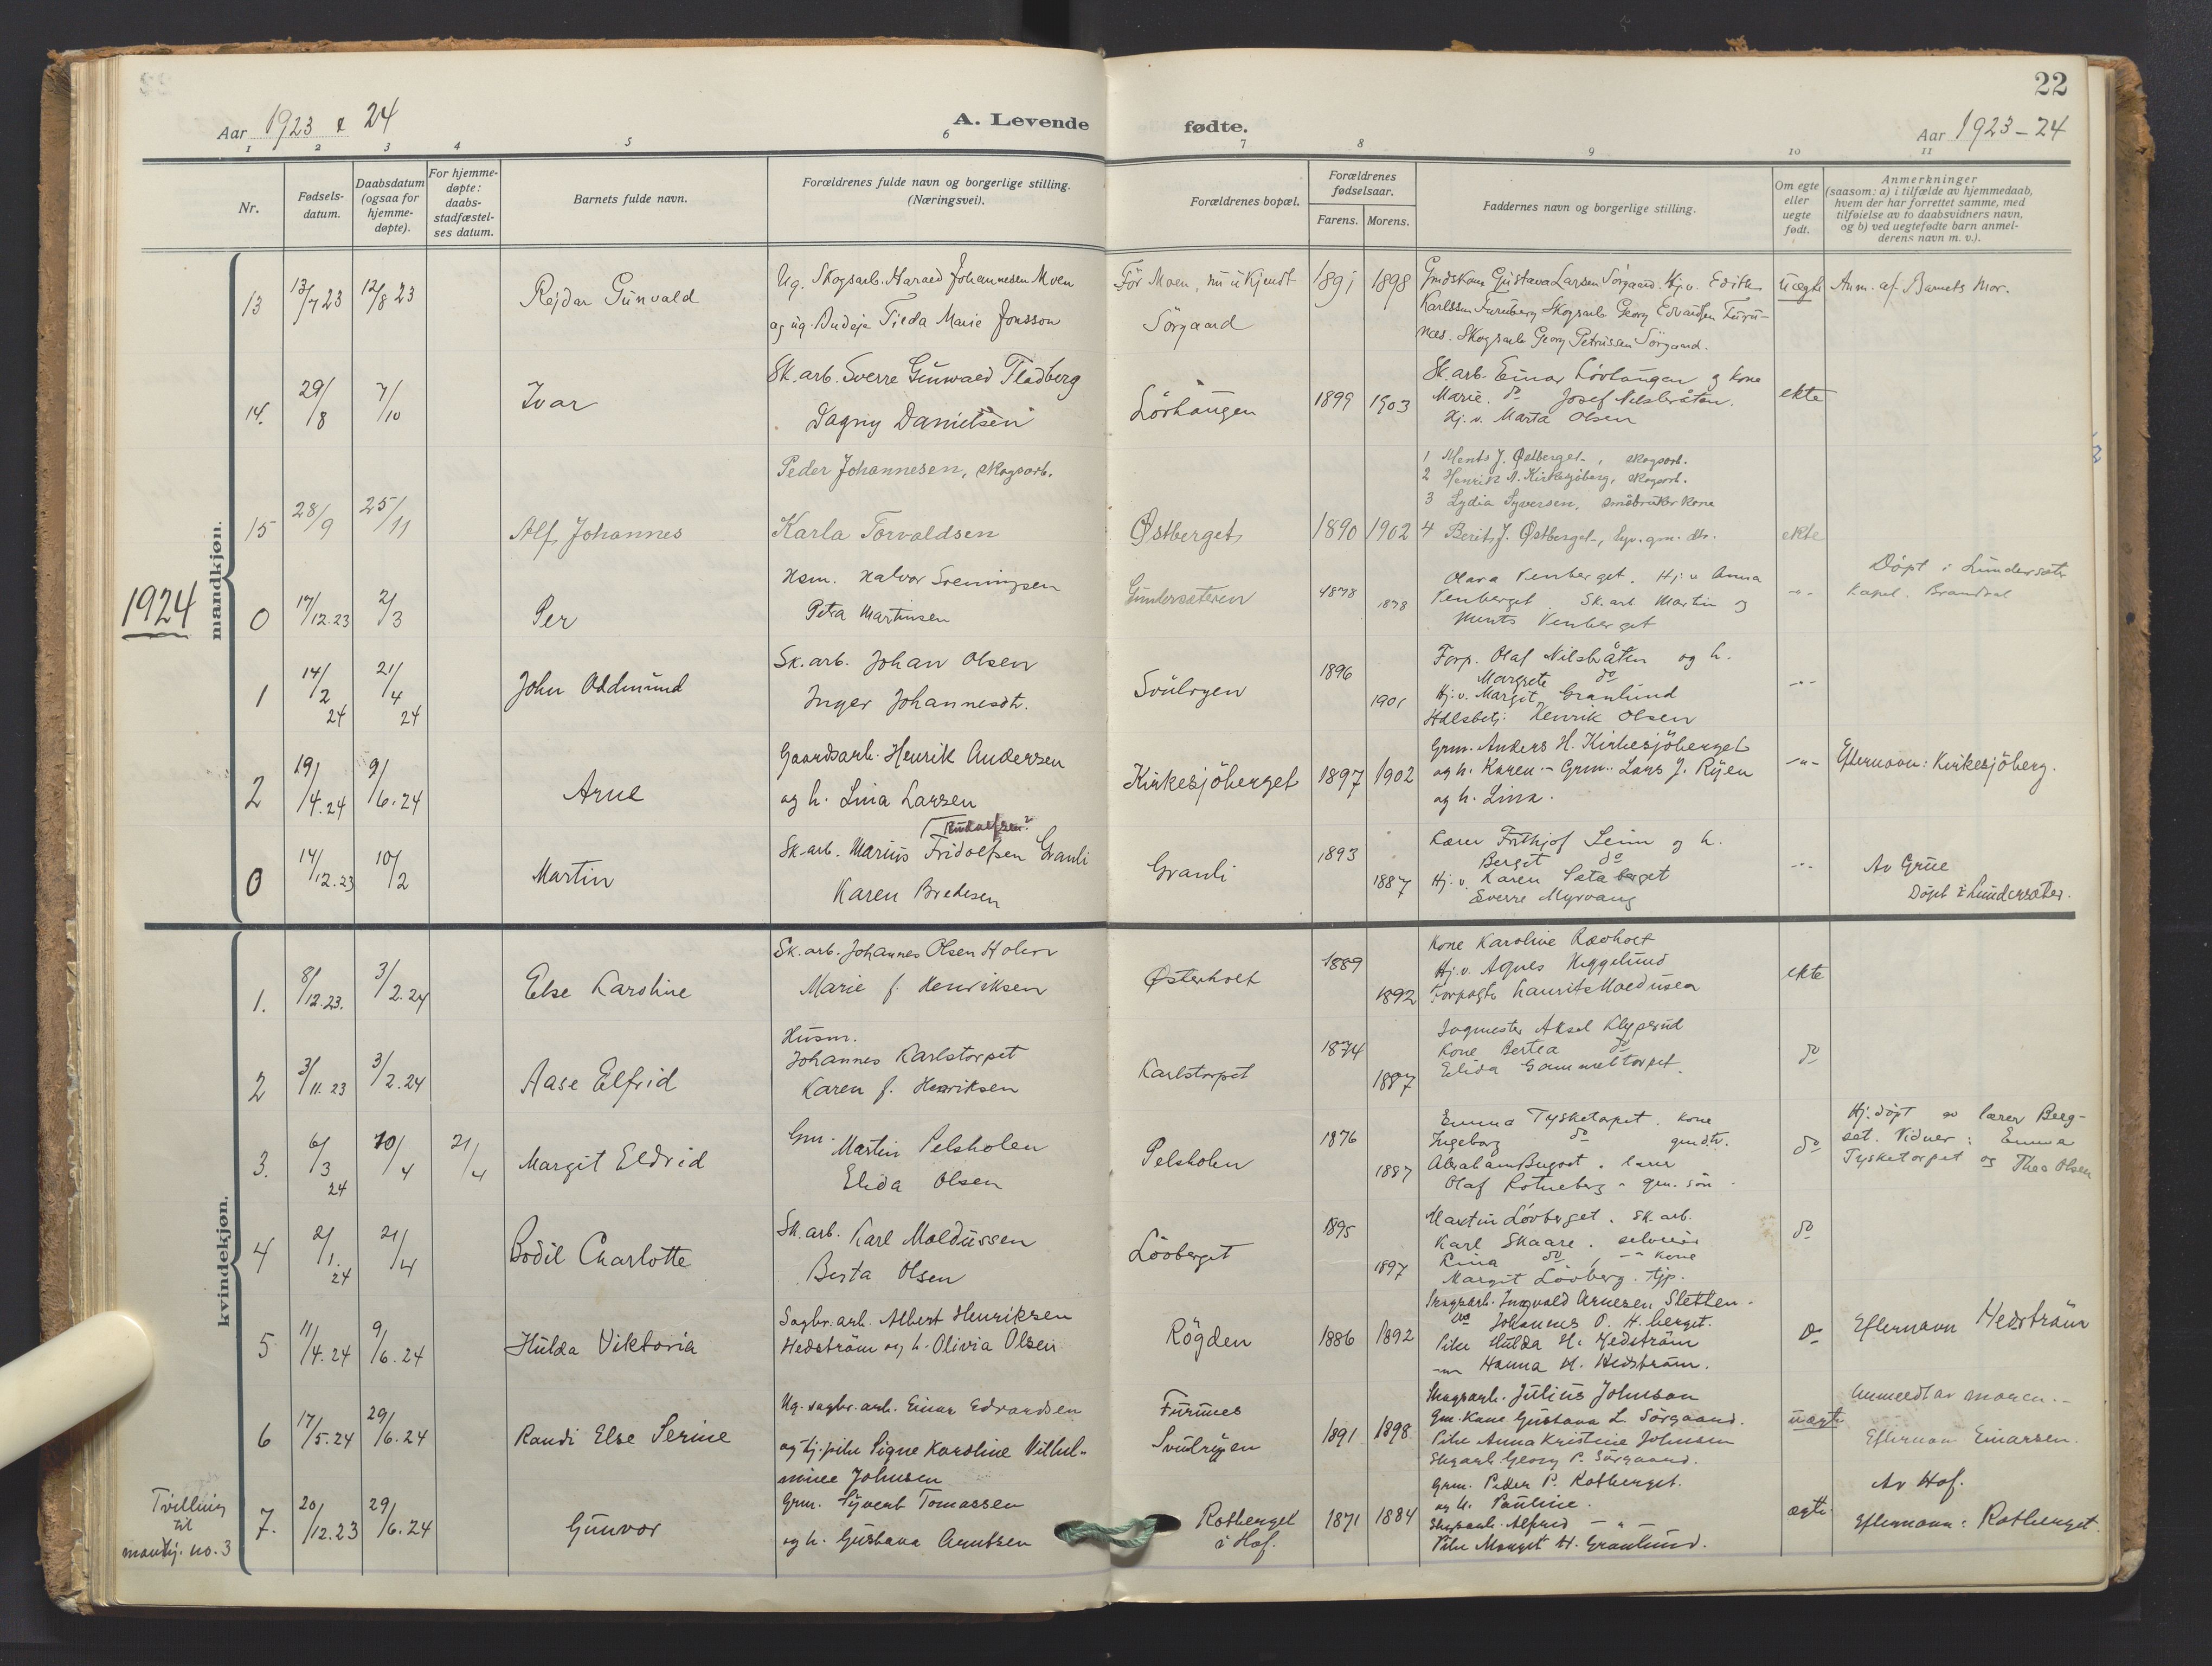 22
Aar 1923 & 24
A. Levende fødte.
Aar 1923-24
1 2 3 4 5 6 7 8 9 10 11
Nr.
Fødsels-datum.
Daabsdatum (ogsaa for hjemme-døpte).
For hjemme-døpte: daabs-stadfæstel-ses datum.
Barnets fulde navn.
Forældrenes fulde navn og borgerlige stilling. (Næringsvei).
Forældrenes bopæl.
Forældrenes fødselsaar.
Farens. Morens.
Faddernes navn og borgerlige stilling.
Om egte eller uegte født.
Anmerkninger (saasom: a) i tilfælde av hjemmedaab, hvem der har forrettet samme, med tilføielse av to daabsvidners navn, og b) ved uegtefødte barn anmel-derens navn m. v.).
mandkjøn.
13 13/7 23 12/8 23 Rejdar Gunvald
Ug. Skogsarb. Harald Johannesen Moen
og ug. Budeje Tilda Marie Jonsson
För Moen, nu ukjendt
Sörgaard
1891 1898
Gmdskone Gustava Larsen Sörgaard. Hj.v. Edith
Karlssen Furuberg Skogsarb Georg Edvardsen Furu-
næs. Skogsarb Georg Petrussen Sörgaard.
uægte Anm. af Barnets Mor.
14. 29/8 7/10 Ivar
Sk. arb. Sverre Gunwald Fladberg
Dagny Danielsen
Lövhaugen
1899 1903
Sk. arb. Einar Lövhaugen og kone
Marie. do Josef Nilsbråten.
Hj. v. Marta Olsen
ekte
15 28/9 25/11 Alf Johannes
Peder Johannesen, skogsarb.
Karla Torvaldsen
Østberget
1890 1902
1 Ments J. Østberget, skogsarb.
2 Henrik A. Kirkesjöberg, skogsarb.
3 Lydia Syversen, småbruker kone
4 Berit J. Østberget,
ekte
1924
0 17/12.23 2/3 Per
Hsm. Halvor Sveningsen
Petra Martinsen
Gundersæteren
1878 1878
Olava Venberget. Hj. v Anna
Venberget Sk. arb. Martin og
Ments Venberget
-"-
Döpt i Lundersæter
Kapel. Brandval
1 14/2 24 21/4 24 John Oddmund
Sk. arb. Johan Olsen
Inger Johannesdt.
Svulryen
1896 1901
Forp. Olaf Nilsbråten og h.
Margrete do
Hj. v. Margit Granlund
Hdlsbetj. Henrik Olsen
-"-
2 19/4.24 9/6.24 Arne
Gaardsarb. Henrik Andersen
og h. Lina Larsen
Kirkesjöberget 1897 1902
Grm. Anders H. Kirkesjöberget
og h. Karen - Grm. Lars J. Ryen
og h. Lina.
-"- Efternavn: Kirkesjöberg.
0 14/12.23 10/2 Martin
Rudolfsen?
Sk. arb. Marius Fridolfsen Granli
Karen Bredesen
Granli
1893 1887
Lærer Frithjof Leim og h.
Bergit do
Hj. v. Karen Sæta berget
Sverre Myrvang
-"-
Av Grue
Döpt i Lundersæter.
kvindekjøn.
1. 8/12.23. 3/2.24 Else Karoline
Sk. arb. Johannes Olsen Holen
Marie f. Henriksen
Østerholt
1889 1892
Kone Karoline Rævholt
Hj. v. Agnes Heggelund
Forpagt. Laurits Moldusen
ekte
2 3/11.23 3/2.24 Aase Elfrid
Husm.
Johannes Karlstorpet
Karen f. Henriksen
Karlstorpet
1874 1887
Aksel Klyperud
Kone Bertea do
Elida Gammeltorpet.
do
3. 6/3 24 10/4 21/4 Margit Eldrid
Gm. Martin Pelsholen
Elida Olsen
Pelsholen
1876 1887
Emma Tysketorpet. kone
Ingeborg do gmdtr.
Abraham . lærer
Olaf Rotneberg - gm. sön
do
Hj. döpt av lærer Berg-
set. Vidner: Emma
Tysketorpet og Thea Olsen
4 2/1. 24 21/4 Bodil Charlotte
Sk. arb. Karl Moldussen
Berta Olsen
Lövberget
1895 1897
Martin Lövberget. sk. arb.
Karl Skaare. selveier
Lina do, -"- kone
Margit Lövberg. tjp.
do
5 11/4.24 9/6.24 Hulda Viktoria
Sagbr. arb. Albert Henriksen
Hedström og h. Olivia Olsen
Rögden 1886 1892
Skogsarb. Ingvald Arnesen Sletten.
do Johannes O. H. berget.
Pike Hulda H. Hedström
-"- Hanna H. Hedström.
do Efternavn Hedström
6 17/5.24 29/6.24 Randi Else Serine
Ug. sagbr. arb. Einar Edvardsen
og tj. pike Signe Karoline Vilhel-
mine Johnsen
Furunes
Svulryen
1891 1898
Skogsarb. Julius Johnson
Gm. Kone Gustava L. Sörgaard.
Pike Anna Kristine Johnsen
Skgarb. Georg P. Sörgaard.
uægte
Anmeldt av moren.
Efternavn Einarsen.
Tvilling
til
mandkj. no. 3
7. 20/12.23 29/6.24 Gunvor
Grm. Syvert Tomassen
og h. Gustava Arntsen
Rotberget
i Hof.
1871 1884
Grm. Peder P. Rotberget.
og h. Pauline.
Skogsarb. Alfred - " -
Pike Margit H. Granlund.
ægte
Av Hof.
Efternavn: Rotberget.